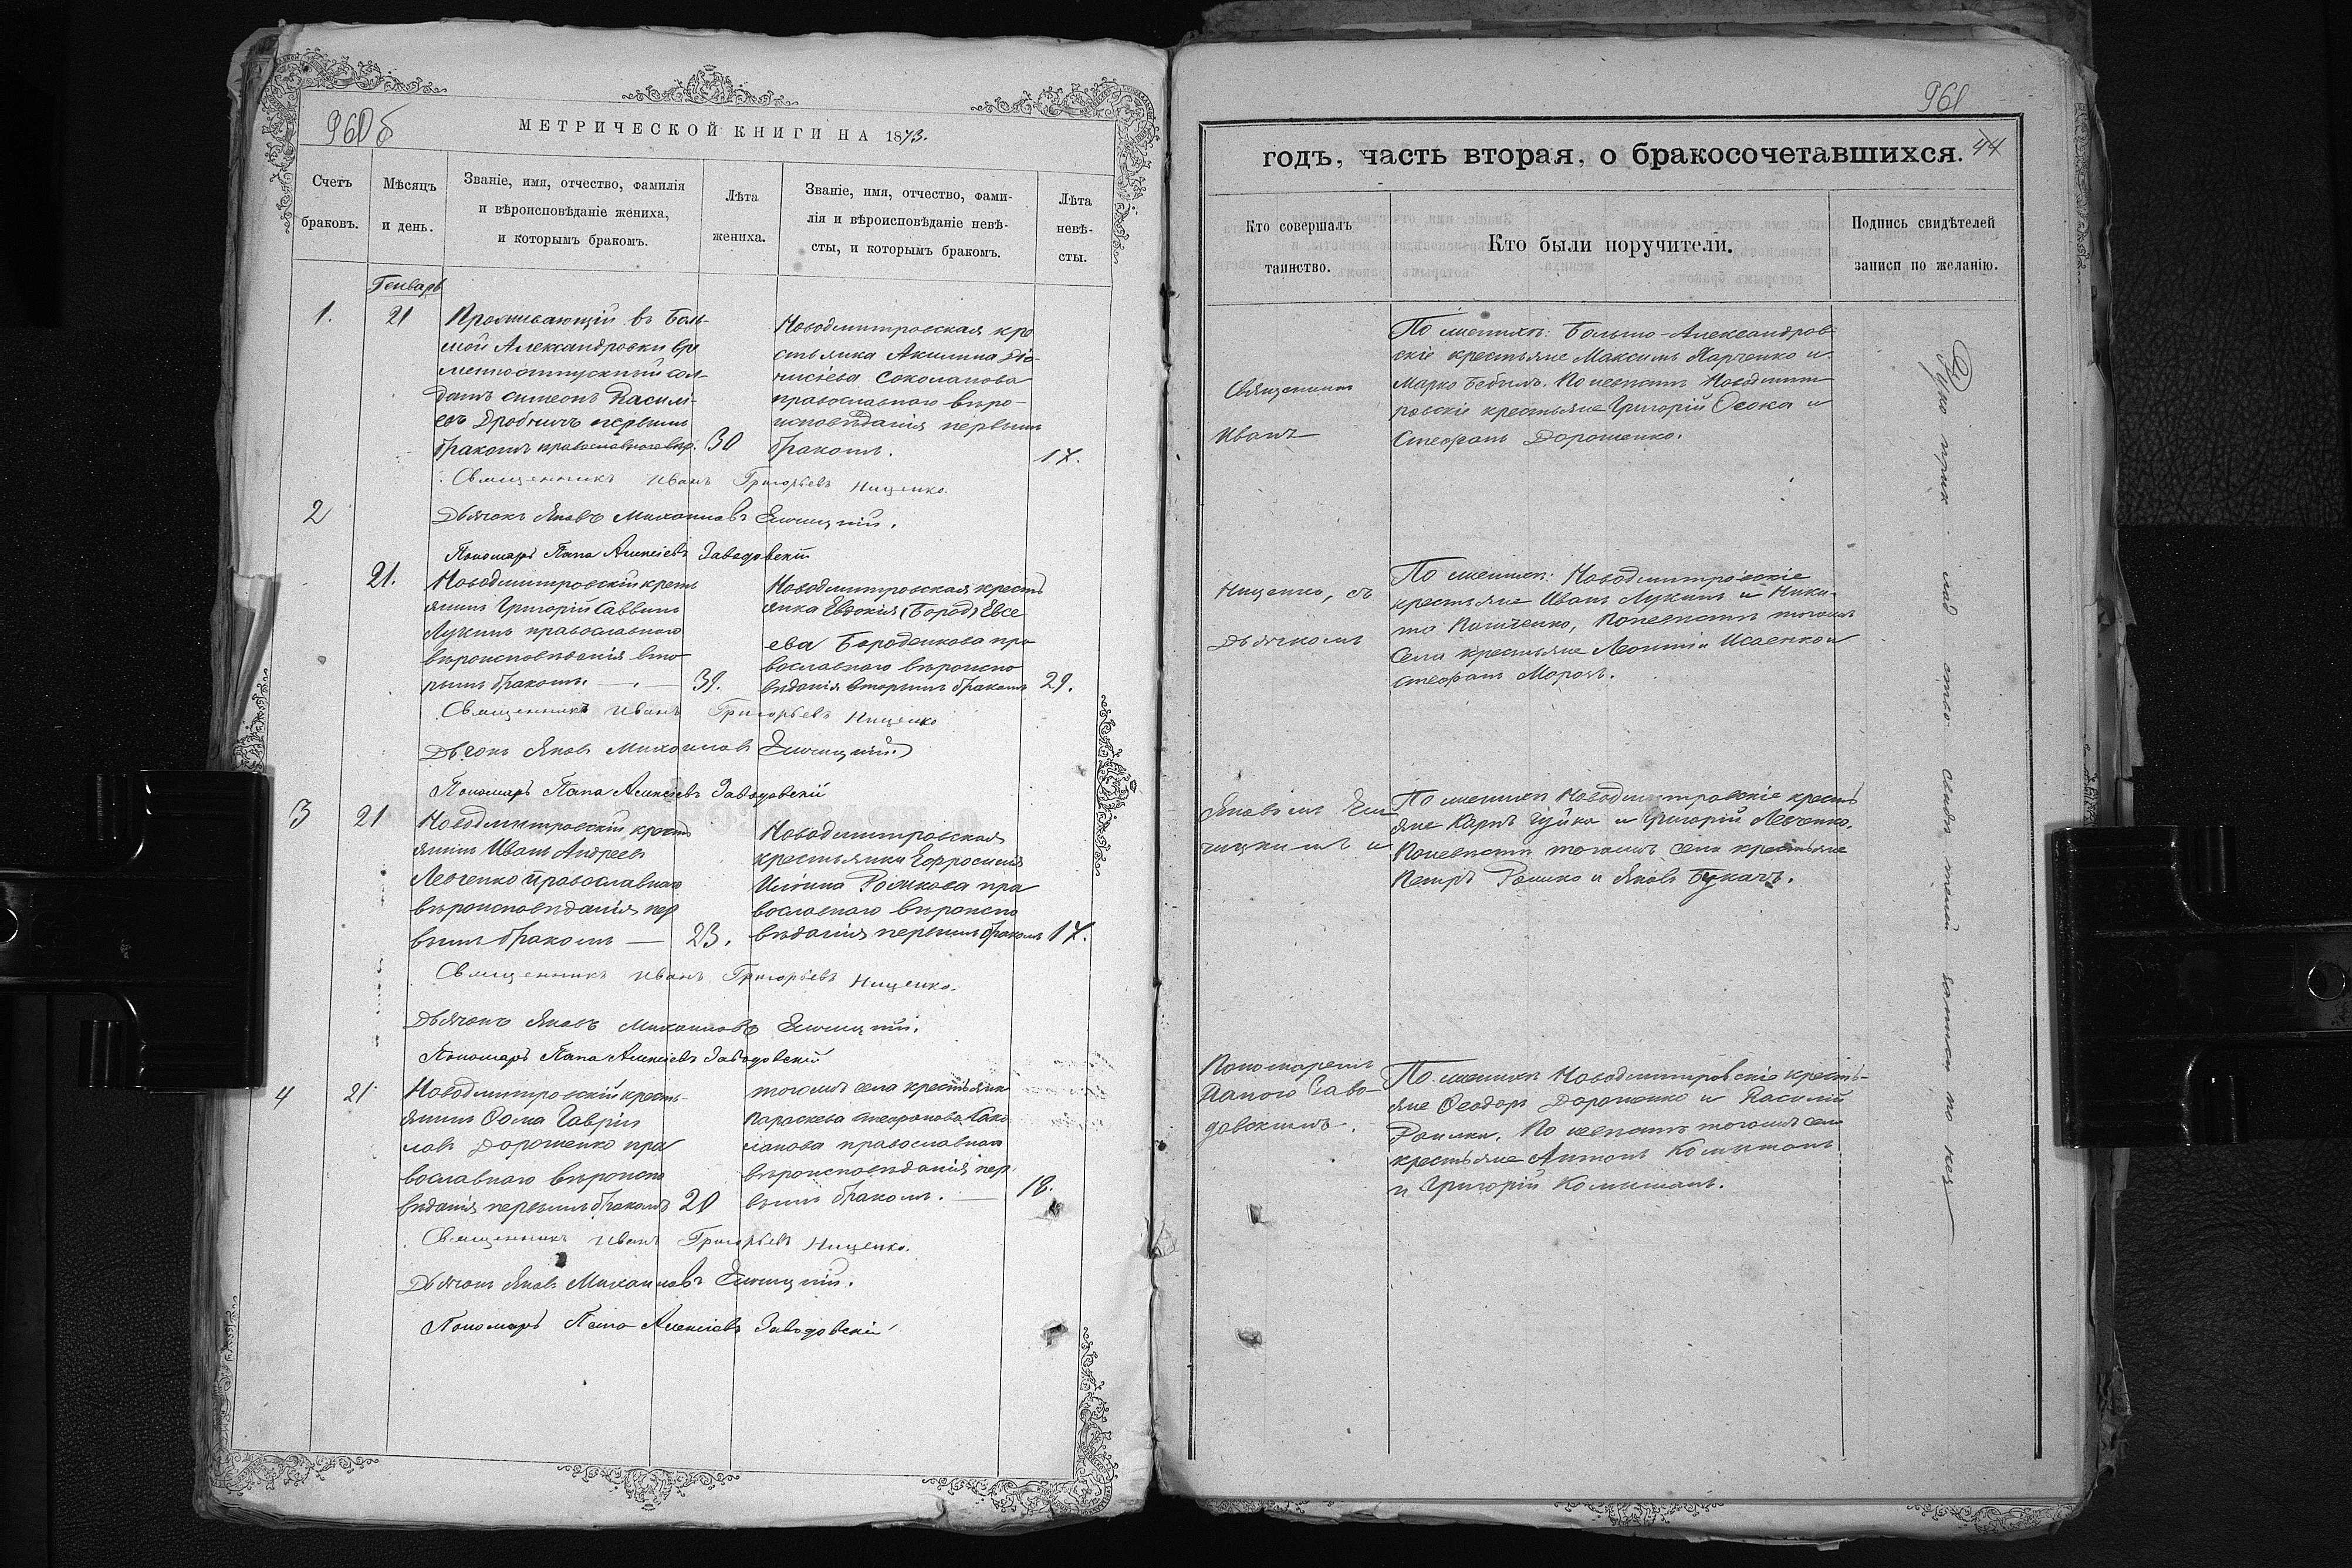 960б
МЕТРИЧЕСКОЙ КНИГИ НА 1873.
Счетъ браковъ.
Мѣсяцъ и день.
Званіе, имя, отчество, фамилія
и вѣроисповѣданіе жениха,
и которымъ бракомъ.
Лѣта жениха.
Званіе, имя, отчество, фами-
лія и вѣроисповѣданіе невѣ-
сты, и которымъ бракомъ.
Лѣта невѣ-
сты.
Генварь
1.
21
Проживающій въ Боль-
шой Александровки вре
менноотпускный сол-
датъ Симеонъ Васильевъ
Дробничъ первымъ
бракомъ православнаго вѣр.
30
Новодмитровская кре
стьянка Акилина Діо-
нисіева Соколанова
православнаго вѣро-
исповѣданія первымъ
бракомъ.
17.
Священникъ Иванъ Григорьевъ Нищенко.
2
Дьячокъ Яковъ Михаиловъ
Пономарь Папа Алексіевъ Заводовскій
21.
Новодмитровскій кресть
янинъ Григорій Саввинъ
Лукинъ православнаго
вѣроисповѣданія вто
рымъ бракомъ. —
39.
Новодмитровская кресть
янка Евдокія (Бород) Евсе
ева Бороденкова пра
вославнаго вѣроиспо
вѣданія вторымъ бракомъ
29.
Священникъ Иванъ Григорьевъ Нищенко
Дьячокъ Яковъ Михаиловъ
Пономарь Папа Алексіевъ Заводовскій
3
21
Новодмитровскій кресть
янинъ Иванъ Андреевъ
Левченко православнаго
вѣроисповѣданія пер
вымъ бракомъ —
23.
Новодмитровская
крестьянка Ефросинія
Иліина Рожкова пра
вославнаго вѣроиспо
вѣданія первымъ бракомъ
17.
Священникъ Иванъ Григорьевъ Нищенко.
Дьячокъ Яковъ Михаиловъ
Пономарь Папа Алексіевъ Заводовскій
4
21
Новодмитровскій кресть-
янинъ Ѳома Гавріи
ловъ Дорошенко пра
вославнаго вѣроиспо
вѣданія первымъ бракомъ
20
тогожъ села крестьянка
Параскева Стефанова Соко
ланова православнаго
вѣроисповѣданія пер
вымъ бракомъ. —
18.
Священникъ Иванъ Григорьевъ Нищенко.
Дьячокъ Яковъ Михаиловъ
Пономарь Папа Алексіевъ Заводовскій
961
44
годъ, часть вторая, о бракосочетавшихся.
Кто совершалъ
таинство.
Кто были поручители.
Подпись свидѣтелей
записи по желанію.
Священникъ
Иванъ
Нищенко, съ
дьячкомъ
Яковомъ
и
Пономаремъ
Папою Заво-
довскимъ.
По женихѣ: Больше-Александров-
скіе крестьяне Максимъ Харченко и
Марко Бебикъ. По невѣстѣ Новодмит
ровскіе крестьяне Григорій Осока и
Стефанъ Дорошенко.
По женихѣ: Новодмитровскіе
крестьяне Иванъ Лукинъ и Ники-
та По невѣстѣ тогожъ
села крестьяне Леонтій Исаенко и
Стефанъ Морозъ.
По женихѣ Новодмитровскіе кресть
яне Карпъ Чуйко и Григорій Левченко.
По невѣстѣ тогожъ села крестьяне
Петръ Рошко и Яковъ Букачъ.
По женихѣ Новодмитровскіе кресть-
яне Ѳеодоръ Дорошенко и Василій
По невѣстѣ тогожъ села
крестьяне Антонъ Комышанъ
и Григорій Комышанъ.